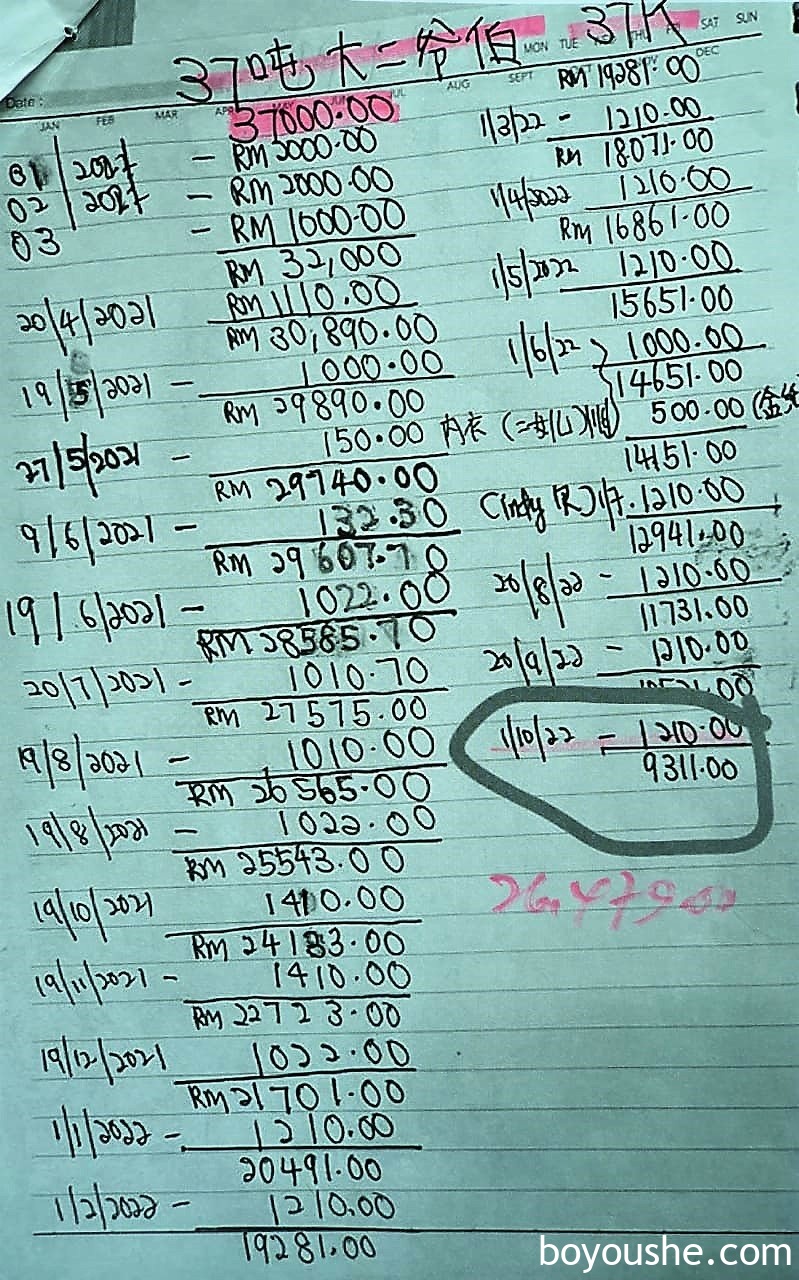 37吨大二爷伯 37K
Date :
MON TUE THU FRI SAT SUN
JAN FEB MAR APR MAY JUN JUL AUG SEPT DEC
37000.00
01 2021 - RM 2000.00
02 2021 - RM 2000.00
03 - RM 1000.00
RM 32,000
20/4/2021 RM 1110.00
RM 30,890.00
19/5/2021 - 1000.00
RM 29890.00
27/5/2021 - 150.00
RM 29740.00
9/6/2021 - 132.30
RM 29607.70
19/6/2021 - 1022.00
RM 28585.70
20/7/2021 - 1010.70
RM 27575.00
19/8/2021 - 1010.00
RM 26565.00
19/8/2021 - 1022.00
RM 25543.00
19/10/2021 1410.00
RM 24133.00
19/11/2021 - 1410.00
RM 22723.00
19/12/2021 1022.00
RM 21701.00
1/1/2022 - 1210.00
20491.00
1/2/2022 - 1210.00
19281.00
RM 19281.00
1/3/22 - 1210.00
RM 18071.00
1/4/2022 1210.00
RM 16861.00
1/5/2022 1210.00
15651.00
1/6/22 1000.00
14651.00
内衣 500.00
14151.00
Cindy (R) 1/7. 1210.00
12941.00
20/8/22 - 1210.00
11731.00
20/9/22 - 1210.00
1/10/22 - 1210.00
9311.00
26,479.00
boyoushe.com